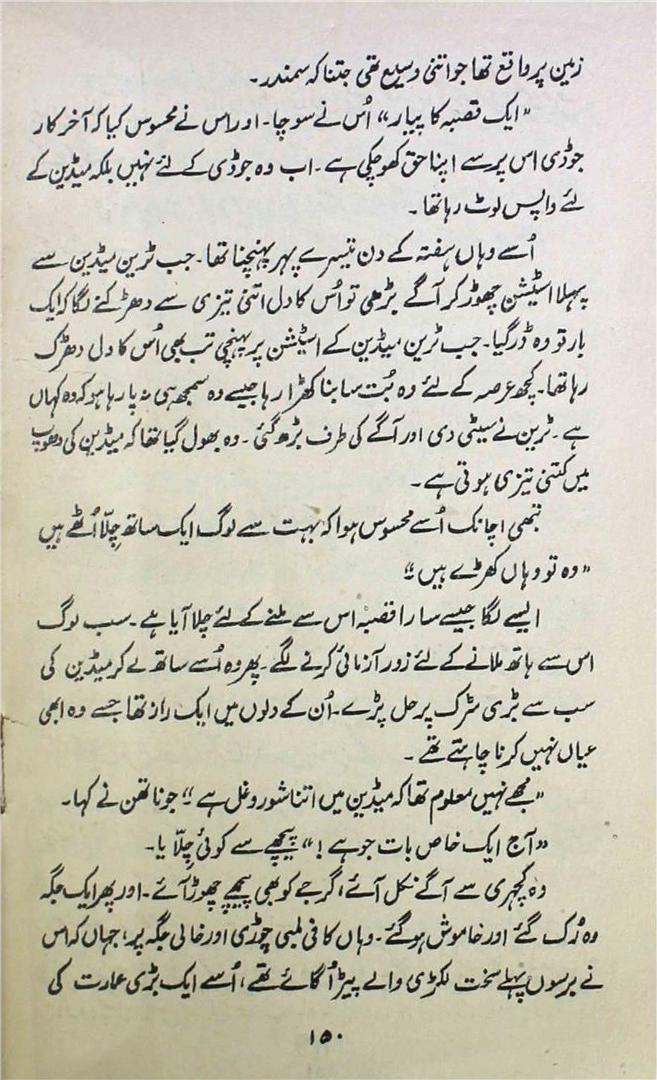 زمین پر واقع تھا جو اتنی وسیع تھی جتنا کہ سمندر۔
"ایک قصبہ کا پیار" اُس نے سوچا۔ اور اس نے محسوس کیا کہ آخر کار
جوڈی اس پر سے اپنا حق کھو چکی ہے۔ اب وہ جوڈی کے لئے نہیں بلکہ میڈین کے
لئے واپس لوٹ رہا تھا۔
اُسے وہاں ہفتہ کے دن تیسرے پہر پہنچنا تھا۔ جب ٹرین میڈین سے
پہلا اسٹیشن چھوڑ کر آگے بڑھی تو اُس کا دل اتنی تیزی سے دھڑکنے لگا کہ ایک
بار تو وہ ڈر گیا۔ جب ٹرین میڈین کے اسٹیشن پر پہنچی تب بھی اُس کا دل دھڑک
رہا تھا۔ کچھ عرصہ کے لئے وہ بُت سا بنا کھڑا رہا جیسے وہ سمجھ ہی نہ پا رہا ہو کہ وہ کہاں
ہے۔ ٹرین نے سیٹی دی اور آگے کی طرف بڑھ گئی۔ وہ بھول گیا تھا کہ میڈین کی دھوپ
میں کتنی تیزی ہوتی ہے۔
تبھی اچانک اُسے محسوس ہوا کہ بہت سے لوگ ایک ساتھ چِلّا اُٹھے ہیں
"وہ تو وہاں کھڑے ہیں"
ایسے لگا جیسے سارا قصبہ اس سے ملنے کے لئے چلا آیا ہے۔ سب لوگ
اس سے ہاتھ ملانے کے لئے زور آزمائی کرنے لگے۔ پھر وہ اُسے ساتھ لے کر میڈین کی
سب سے بڑی سڑک پر چل پڑے۔ اُن کے دلوں میں ایک راز تھا جسے وہ ابھی
عیاں نہیں کرنا چاہتے تھے۔
"مجھے نہیں معلوم تھا کہ میڈین میں اتنا شور و غل ہے" جوناتھن نے کہا۔
"آج ایک خاص بات جو ہے!" پیچھے سے کوئی چِلّایا۔
وہ کچہری سے آگے نکل آئے، گرجے کو بھی پیچھے چھوڑ آئے۔ اور پھر ایک جگہ
وہ رُک گئے اور خاموش ہو گئے۔ وہاں کافی لمبی چوڑی اور خالی جگہ پر؛ جہاں کہ اس
نے برسوں پہلے سخت لکڑی والے پیڑ اُگائے تھے، اُسے ایک بڑی عمارت کی
۱۵۰